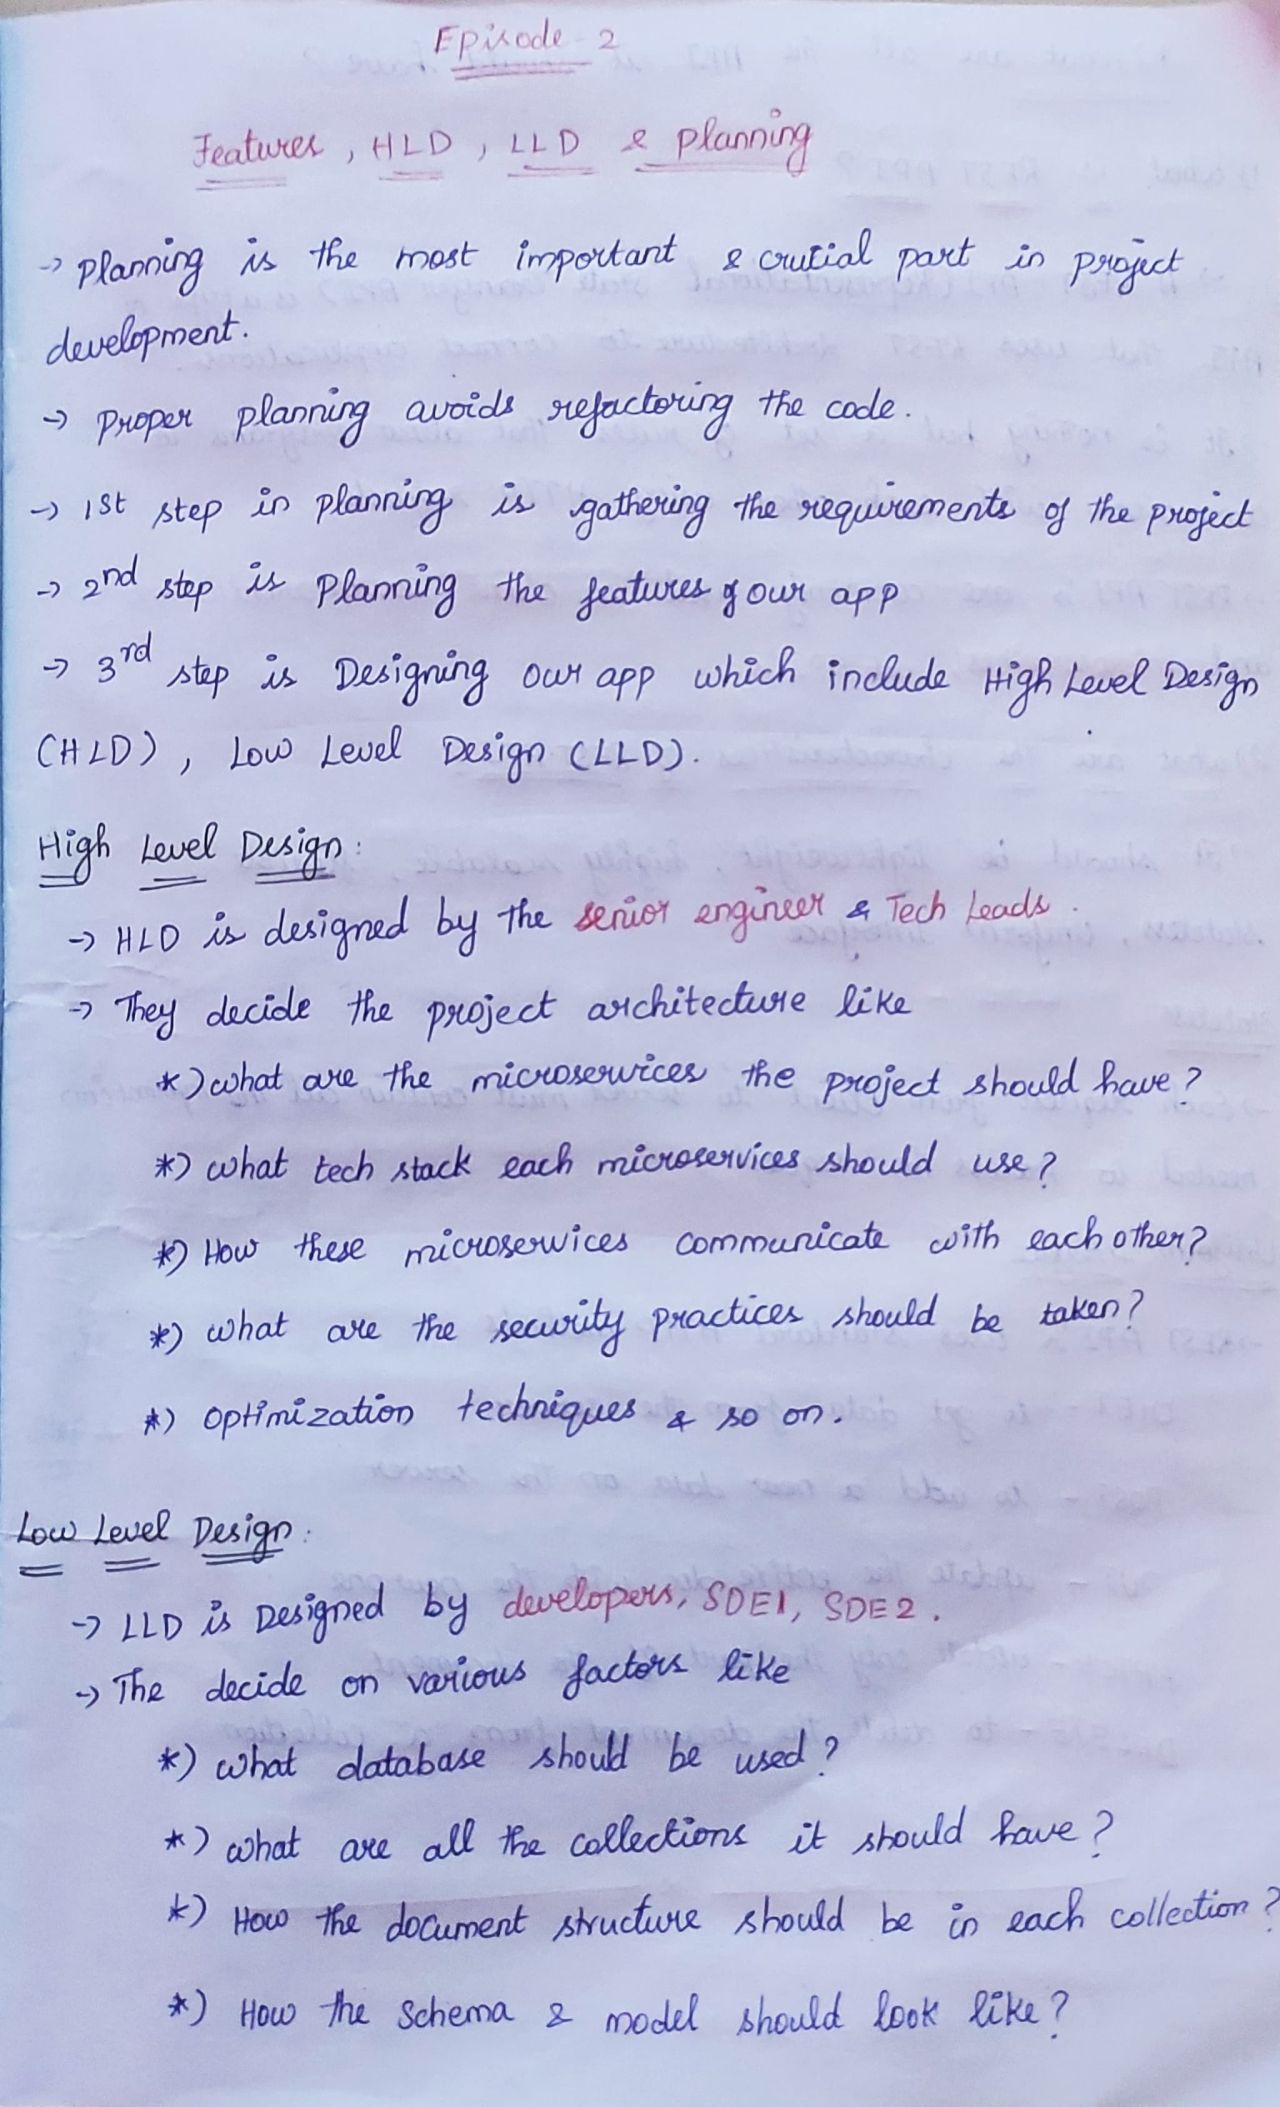 Episode - 2
Features, HLD, LLD & planning
-> planning is the most important & crutial part in project
development.
-> Proper planning avoids refactoring the code.
-> 1st step in planning is gathering the requirements of the project
-> 2nd step is Planning the features of our app
-> 3rd step is Designing our app which include High Level Design
(HLD), Low Level Design (LLD).
High Level Design:
-> HLD is designed by the senior engineer & Tech Leads.
-> They decide the project architecture like
*) what are the microservices the project should have?
*) what tech stack each microservices should use?
*) How these microservices communicate with each other?
*) what are the security practices should be taken?
*) optimization techniques & so on.
Low Level Design:
-> LLD is Designed by developers, SDE1, SDE2.
-> The decide on various factors like
*) what database should be used?
*) what are all the collections it should have?
*) How the document structure should be in each collection?
*) How the Schema & model should look like?